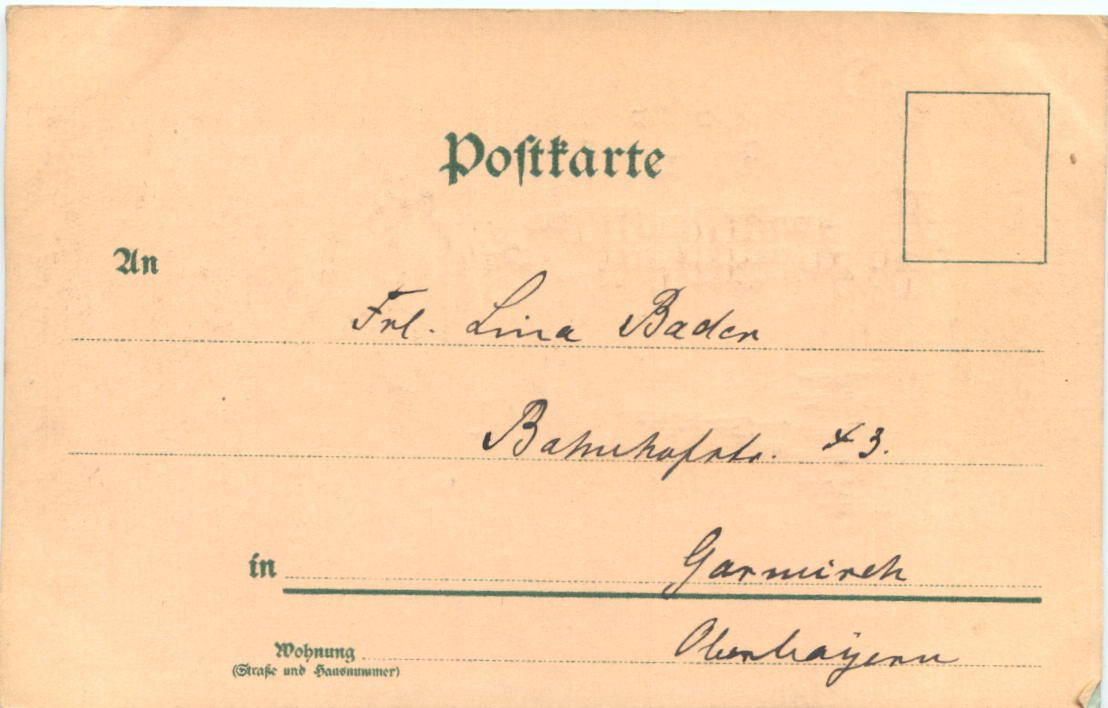 Postkarte
An
Frl. Lina Bader
Bahnhofstr. 43.
in Garmisch
Wohnung Oberbayern
(Straße und Hausnummer)